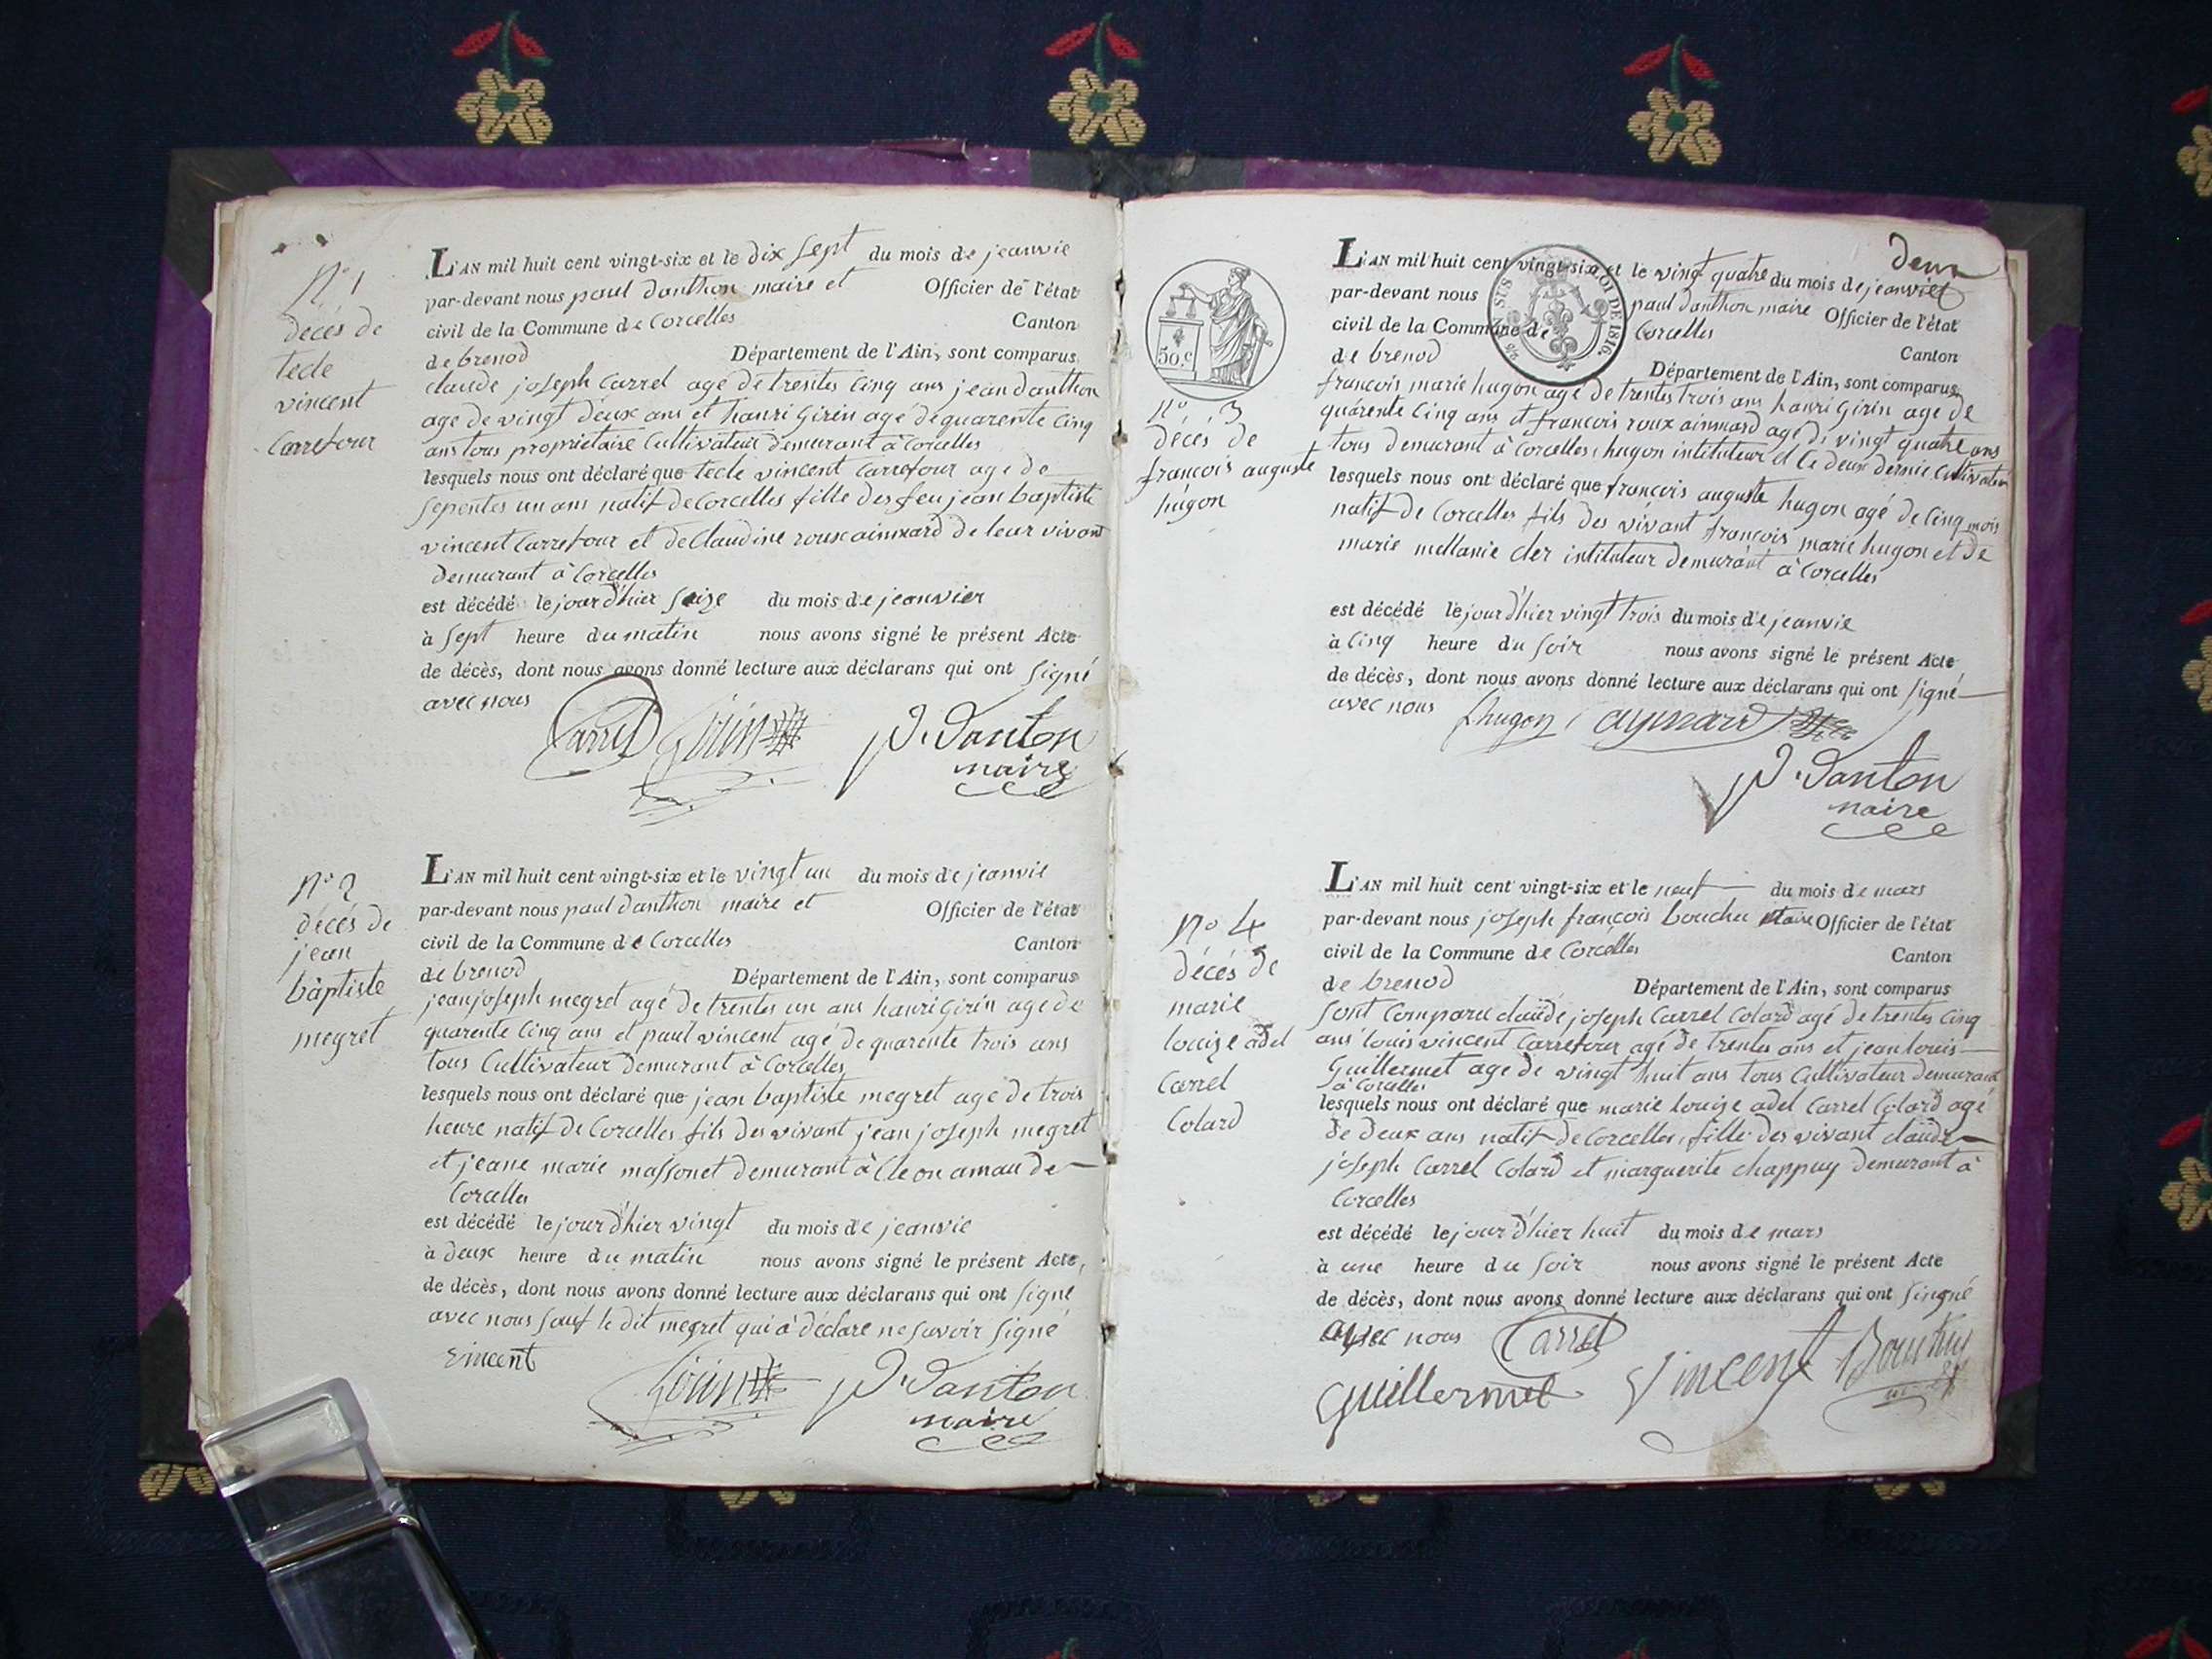 N° 1
décés de
tecle
vincent
Carrefour
L'AN mil huit cent vingt-six et le dix sept du mois de jeanvie
par-devant nous paul danthon maire et Officier de l'état
civil de la Commune de Corcelles Canton
de brenod Département de l'Ain, sont comparus
claude joseph Carrel agé de trentes Cinq ans jean danthon
age de vingt deux ans et hanri Girin agé de quarente Cinq
ans tous propriétaire Cultivateur demurant à Corcelles
lesquels nous ont déclaré que tecle vincent Carrefour age de
sepentes un ans natif de Corcelles fille des feu jean baptiste
vincent Carrefour et de Claudine roux ainmard de leur vivant
demurant à Corcelles
est décédé le jour d'hier seize du mois de jeanvier
à sept heure du matin nous avons signé le présent Acte
de décès, dont nous avons donné lecture aux déclarans qui ont signé
avec nous
Carrel Girin P. Danton
maire
N° 2
décés de
jean
baptiste
megret
L'AN mil huit cent vingt-six et le vingt un du mois de jeanvie
par-devant nous paul danthon maire et Officier de l'état
civil de la Commune de Corcelles Canton
de brenod Département de l'Ain, sont comparus
jean joseph megret agé de trentes un ans hanri Girin age de
quarente Cinq ans et paul vincent agé de quarente trois ans
tous Cultivateur demurant à Corcelles
lesquels nous ont déclaré que jean baptiste megret age de trois
heure natif de Corcelles fils des vivant jean joseph megret
et jeane marie massonet demurant à Cleon amau de
Corcelles
est décédé le jour d'hier vingt du mois de jeanvie
à deux heure du matin nous avons signé le présent Acte,
de décès, dont nous avons donné lecture aux déclarans qui ont signé
avec nous sauf le dit megret qui à déclare ne savoir signé
vincent
Girin P. Danton
maire
deux
SUS LOI DE 1816.
50.c
N° 3
décés de
francois auguste
hugon
L'AN mil huit cent vingt-six et le vingt quatre du mois de jeanvier
par-devant nous paul danthon maire Officier de l'état
civil de la Commune de Corcelles
de brenod Canton
Département de l'Ain, sont comparus
francois marie hugon age de trentes trois ans hanri Girin age de
quarente Cinq ans et francois roux ainmard agé de vingt quatre ans
tous demurant à Corcelles, hugon intituteur et le deux dernie Cultivateur
lesquels nous ont déclaré que francois auguste hugon agé de Cinq mois
natif de Corcelles fils des vivant francois marie hugon et de
marie mellanie cler intituteur demurant à Corcelles
est décédé le jour d'hier vingt trois du mois de jeanvie
à Cinq heure du soir nous avons signé le présent Acte
de décès, dont nous avons donné lecture aux déclarans qui ont signé
avec nous
f hugon aymard
P. Danton
maire
N° 4
décés de
marie
louize adel
Carrel
Colard
L'AN mil huit cent vingt-six et le neuf du mois de mars
par-devant nous joseph françois bouchu Maire Officier de l'état
civil de la Commune de Corcelles Canton
de brenod Département de l'Ain, sont comparus
sont Comparu claude joseph Carrel Colard agé de trentes Cinq
ans louis vincent Carrefour agé de trentes ans et jean louis
Guillermet age de vingt huit ans tous Cultivateur demurant
à Corcelles
lesquels nous ont déclaré que marie louize adel Carrel Colard agé
de deux ans natif de Corcelles, fille des vivant claude
joseph Carrel Colard et marguerite chappuy demurant à
Corcelles
est décédé le jour d'hier huit du mois de mars
à une heure du soir nous avons signé le présent Acte
de décès, dont nous avons donné lecture aux déclarans qui ont singné
avec nous Carrel
Guillermet Vincent Bouchu